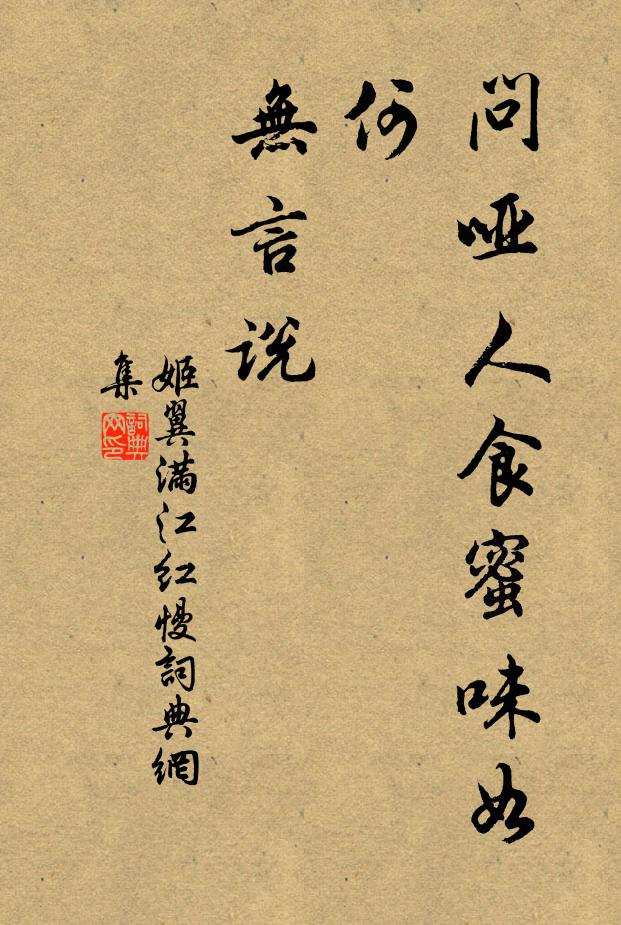 問啞人食蜜味如
何
無言說
姬翼滿江紅慢詞典網
集
詞典
网印